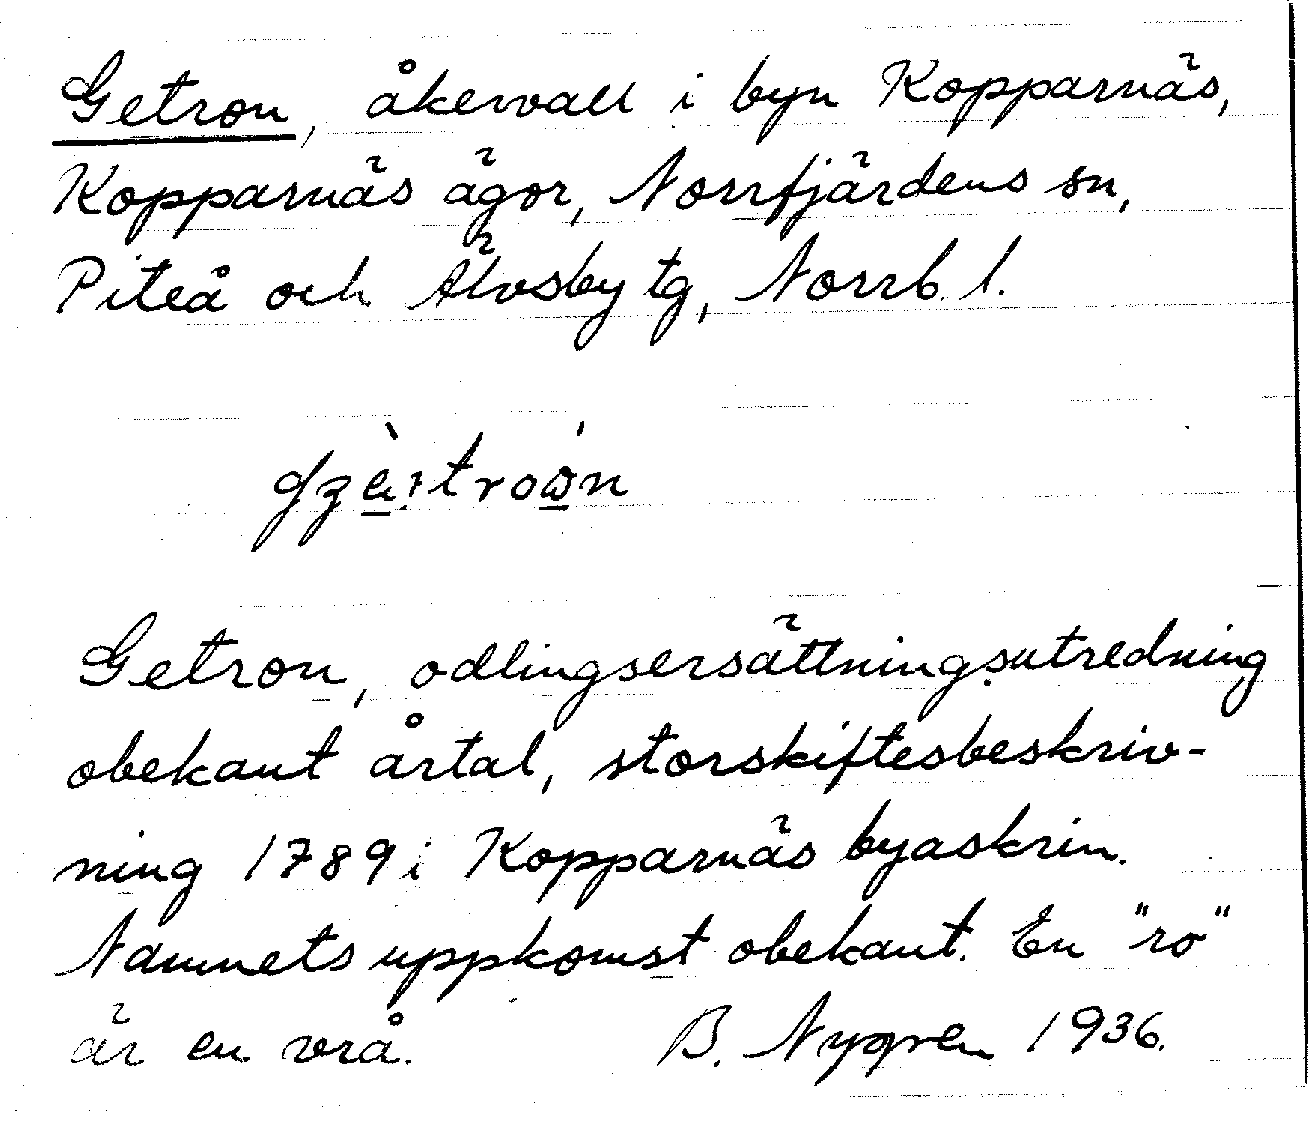 Getron, åkervall i byn Kopparnäs,
Kopparnäs ägor, Norrfjärdens sn,
Piteå och Älvsby tg, Norrb. l.
Getron, odlingsersättningsutredning
obekant årtal, storskiftesbeskriv-
ning 1789 i Kopparnäs byaskrin.
Namnets uppkomst obekant. En "ro"
är en vrå. B. Nygren 1936.